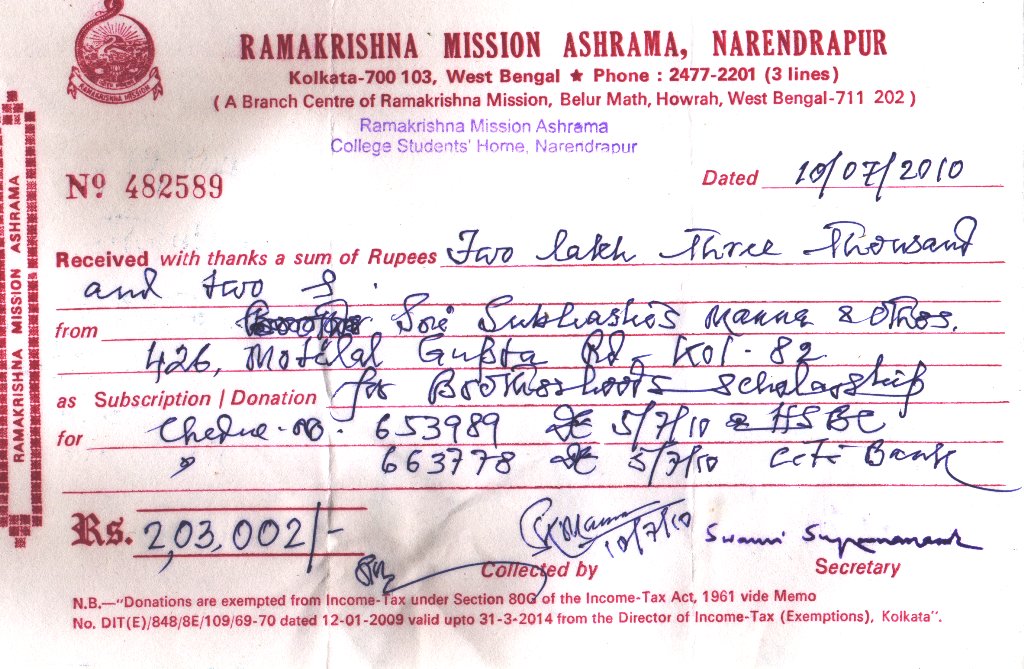 RAMAKRISHNA MISSION
RAMAKRISHNA MISSION ASHRAMA, NARENDRAPUR
Kolkata-700 103, West Bengal ★ Phone : 2477-2201 (3 lines)
( A Branch Centre of Ramakrishna Mission, Belur Math, Howrah, West Bengal-711 202 )
Ramakrishna Mission Ashrama
College Students' Home, Narendrapur
Nº 482589
Dated 10/07/2010
RAMAKRISHNA MISSION ASHRAMA
Received with thanks a sum of Rupees Two lakh Three Thousand
and two
from Sri Subhashis Manna & Others.
426, Motilal Gupta Rd - Kol - 82
as Subscription / Donation for Brotherhoods scholarship
for Cheque - No. 653989 Dt 5/7/10 HSBC
" 663778 Dt 5/7/10 Citi Bank
Rs. 2,03,002/-
SKManna
10/7/10
Swami Suparnananda
Collected by
Secretary
N.B.—"Donations are exempted from Income-Tax under Section 80G of the Income-Tax Act, 1961 vide Memo
No. DIT(E)/848/8E/109/69-70 dated 12-01-2009 valid upto 31-3-2014 from the Director of Income-Tax (Exemptions), Kolkata".